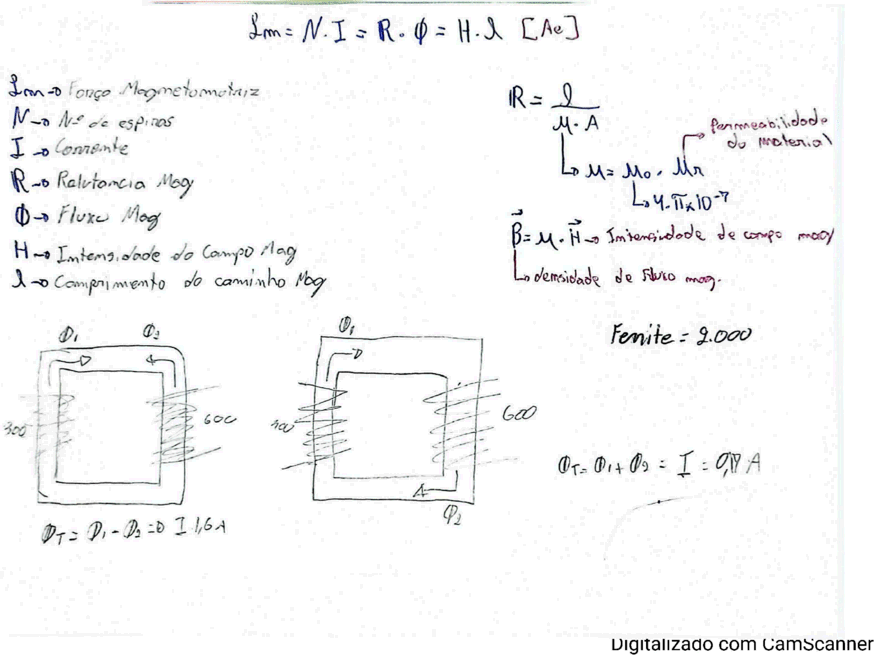 Fm = N.I = R.Φ = H.l [Ae]
Fm → Força Magnetomotriz
N → Nº de espiras
I → Corrente
R → Relutancia Mag
Φ → Fluxo Mag
H → Intensidade do Campo Mag
l → Comprimento do caminho Mag
R = l / μ.A
μ = μ0 . μr → Permeabilidade do material
4.π x 10^-7
B = μ.H → Intensidade de campo mag
densidade de Fluxo mag.
Ferrite = 2.000
Φ1 Φ2
300 600
ΦT = Φ1 - Φ2 = 0 I 1,6 A
Φ1
300 600
Φ2
ΦT = Φ1 + Φ2 = I =
Digitalizado com CamScanner